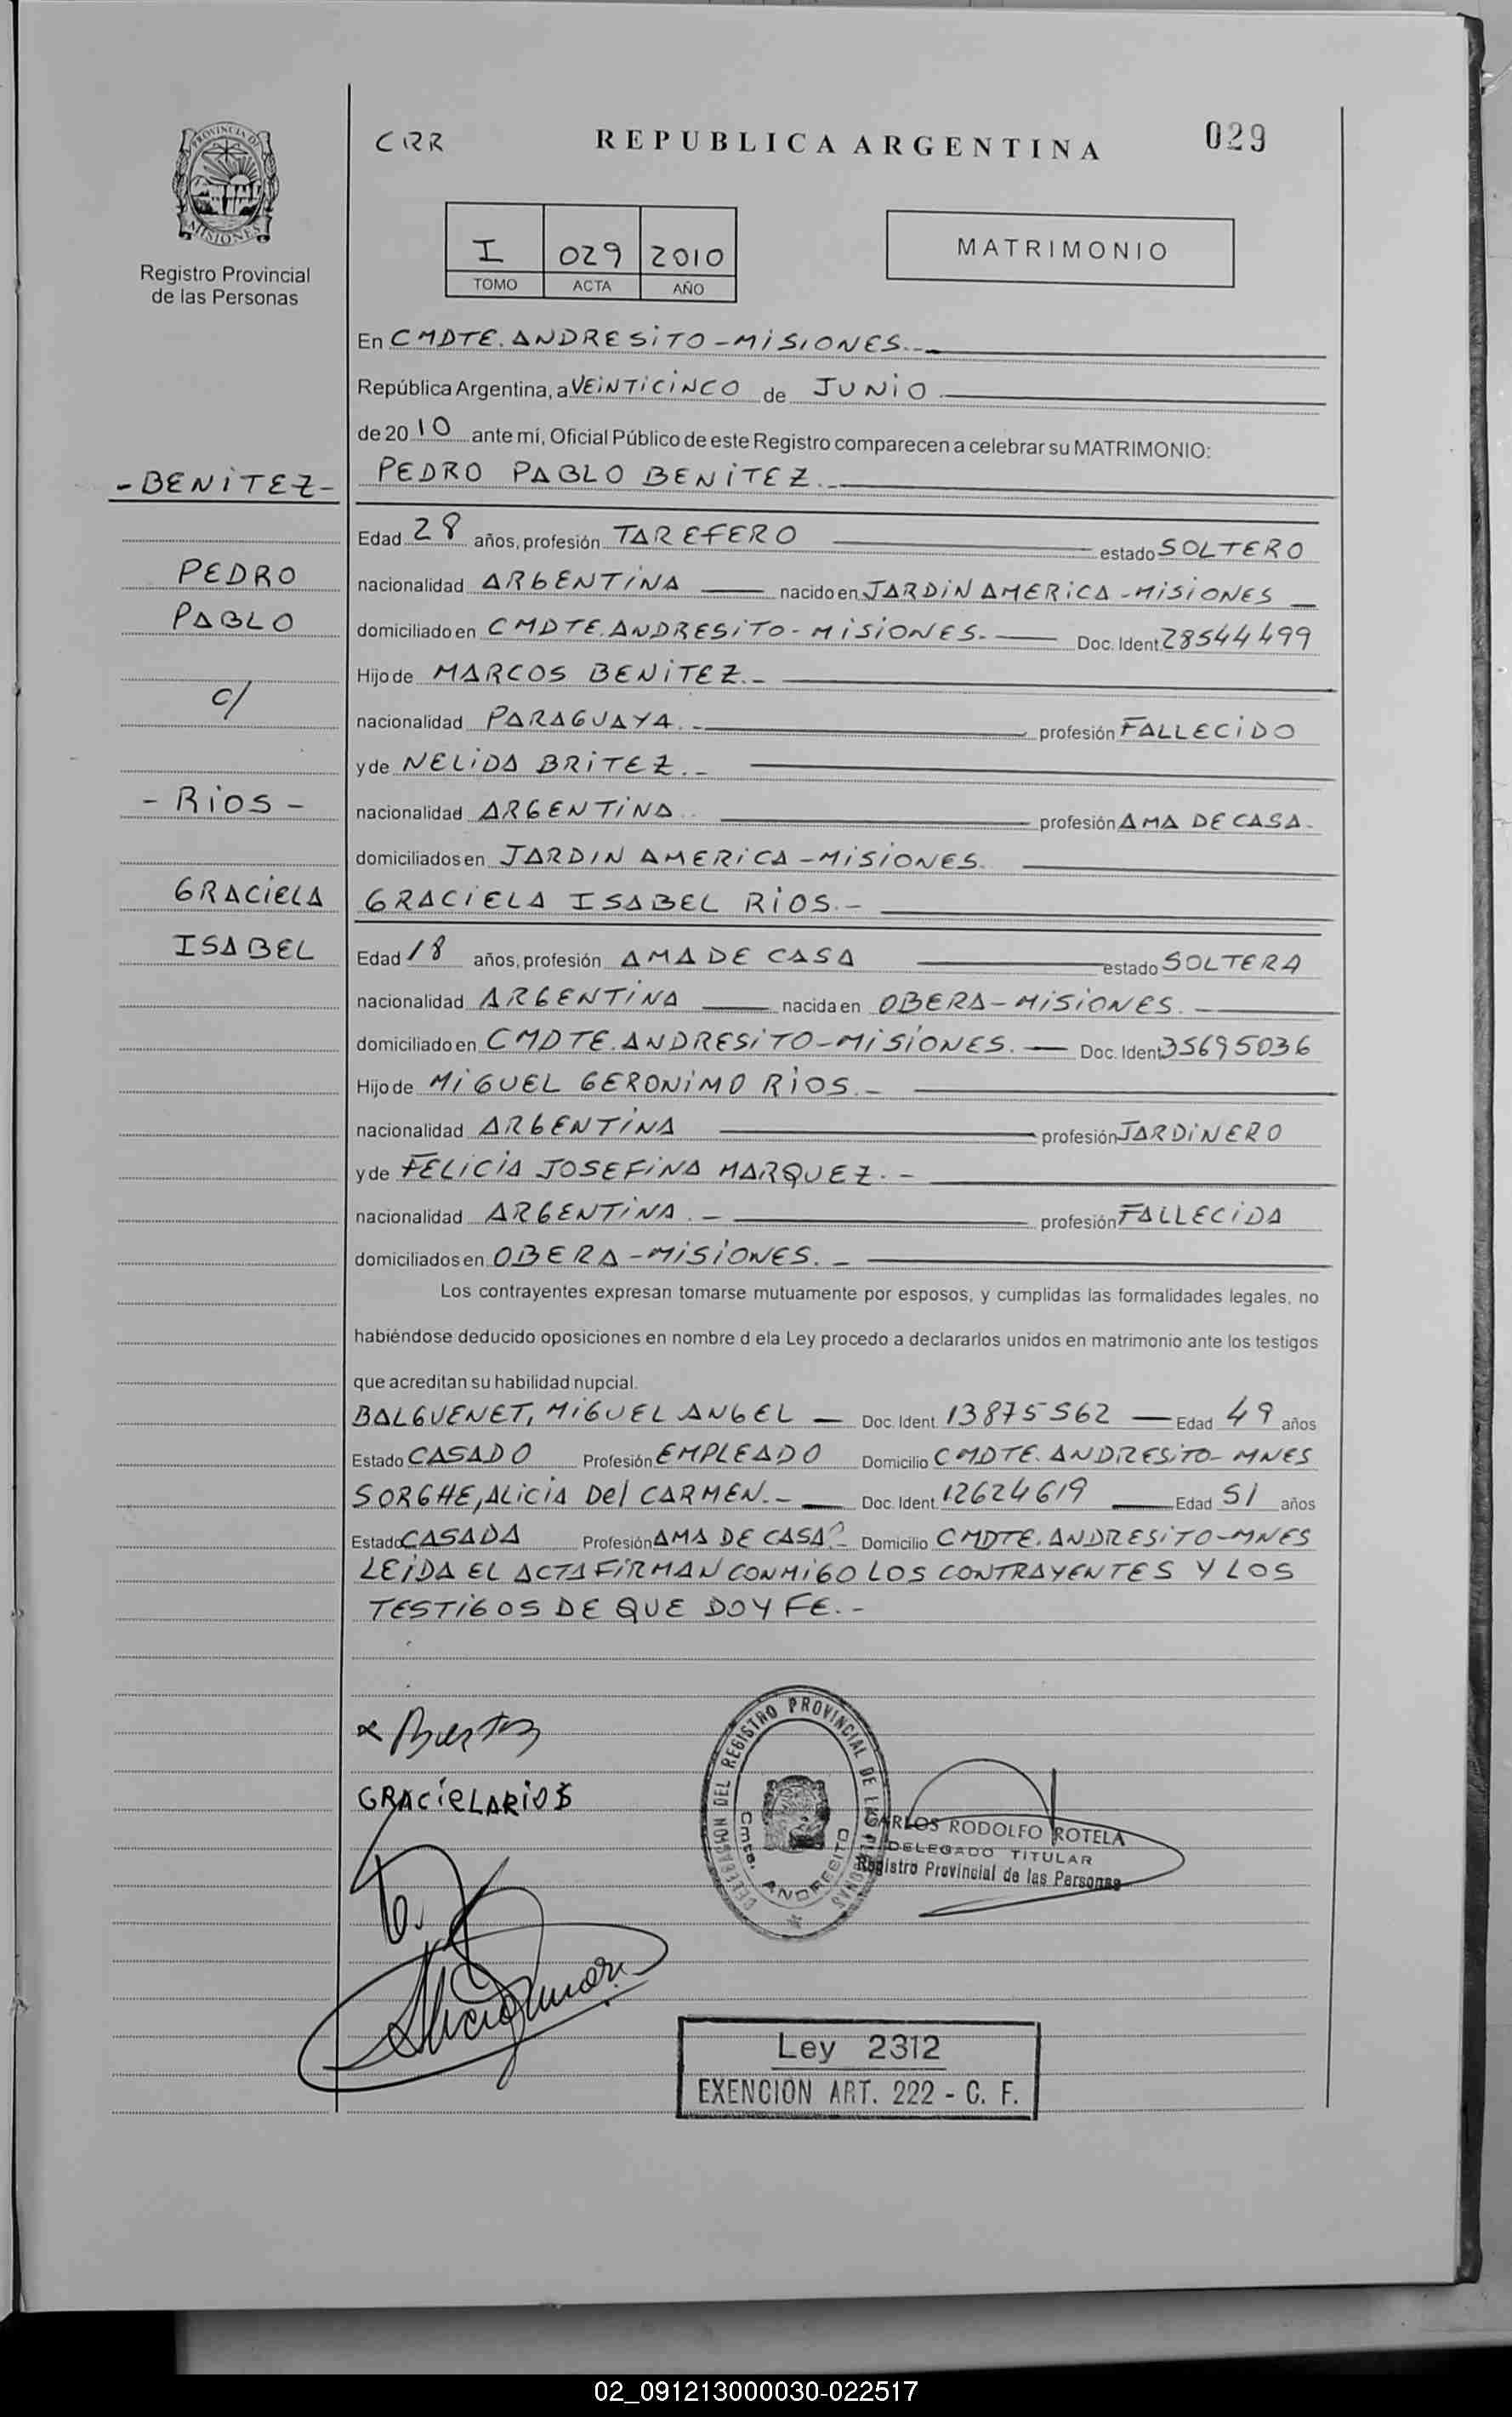 CRR
REPUBLICA ARGENTINA
029
PROVINCIA DE
MISIONES
Registro Provincial
de las Personas
I 029 2010
TOMO ACTA AÑO
MATRIMONIO
En CMDTE. ANDRESITO - MISIONES.-
República Argentina, a VEINTICINCO de JUNIO
de 2010 ante mí, Oficial Público de este Registro comparecen a celebrar su MATRIMONIO:
- BENITEZ - PEDRO PABLO BENITEZ.-
Edad 28 años, profesión TAREFERO estado SOLTERO
PEDRO nacionalidad ARGENTINA nacido en JARDIN AMERICA - MISIONES
PABLO domiciliado en CMDTE. ANDRESITO - MISIONES.- Doc. Ident. 28544499
Hijo de MARCOS BENITEZ.-
c/ nacionalidad PARAGUAYA.- profesión FALLECIDO
y de NELIDA BRITEZ.-
- RIOS - nacionalidad ARGENTINA.. profesión AMA DE CASA.
domiciliados en JARDIN AMERICA - MISIONES.
GRACIELA GRACIELA ISABEL RIOS.-
ISABEL Edad 18 años, profesión AMA DE CASA estado SOLTERA
nacionalidad ARGENTINA nacida en OBERA - MISIONES.-
domiciliado en CMDTE. ANDRESITO - MISIONES. - Doc. Ident. 35695036
Hijo de MIGUEL GERONIMO RIOS.-
nacionalidad ARGENTINA profesión JARDINERO
y de FELICIA JOSEFINA MARQUEZ.-
nacionalidad ARGENTINA.- profesión FALLECIDA
domiciliados en OBERA - MISIONES.-
Los contrayentes expresan tomarse mutuamente por esposos, y cumplidas las formalidades legales, no
habiéndose deducido oposiciones en nombre d ela Ley procedo a declararlos unidos en matrimonio ante los testigos
que acreditan su habilidad nupcial.
BALGUENET, MIGUEL ANGEL - Doc. Ident. 13875562 - Edad 49 años
Estado CASADO Profesión EMPLEADO Domicilio CMDTE. ANDRESITO - MNES
SORGHE, ALICIA Del CARMEN.- Doc. Ident. 12624619 Edad 51 años
Estado CASADA Profesión AMA DE CASA - Domicilio CMDTE. ANDRESITO - MNES
LEIDA EL ACTA FIRMAN CONMIGO LOS CONTRAYENTES Y LOS
TESTIGOS DE QUE DOY FE.-
GRACIELA RIOS
DELEGACION DEL REGISTRO PROVINCIAL DE LAS PERSONAS
Cmte. ANDRESITO
CARLOS RODOLFO ROTELA
DELEGADO TITULAR
Registro Provincial de las Personas
Ley 2312
EXENCION ART. 222 - C. F.
02_091213000030-022517